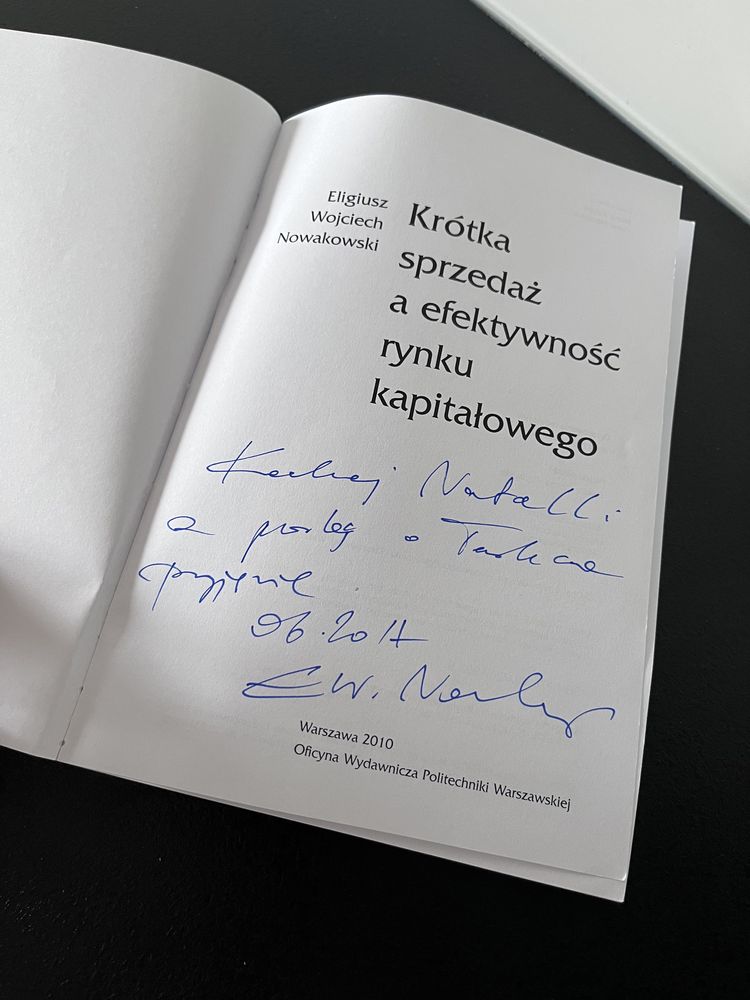 Eligiusz
Wojciech
Nowakowski
Krótka
sprzedaż
a efektywność
rynku
kapitałowego
Kochanej Natalii
z prośbą o
przyjęcie
06.2017
E W. Nowakowski
Warszawa 2010
Oficyna Wydawnicza Politechniki Warszawskiej